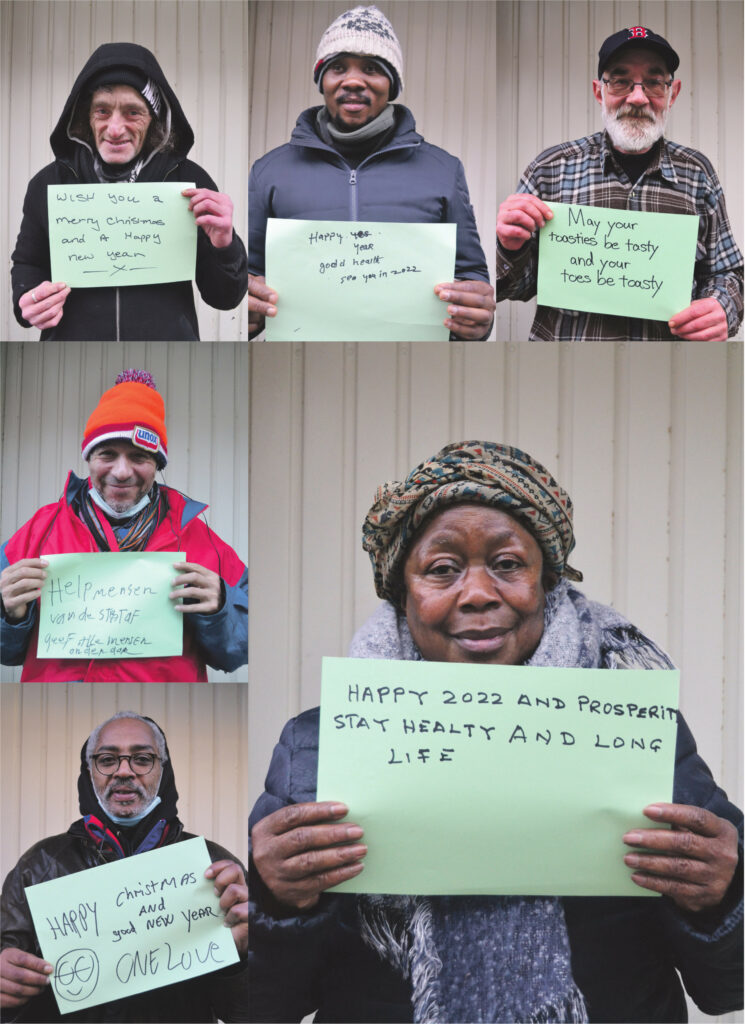 WISH YOU A
merry christmas
and A Happy
new year
—x—
Happy yes.
YEAR
godd health
see you in 2022
B
May your
toasties be tasty
and your
toes be toasty
unox
Help mensen
van de straf
geef alle mensen
onderdak
HAPPY 2022 AND PROSPERIT
STAY HEALTY AND LONG
LIFE
HAPPY christMAS
AND
good NEW YEAR
ONE LOVE